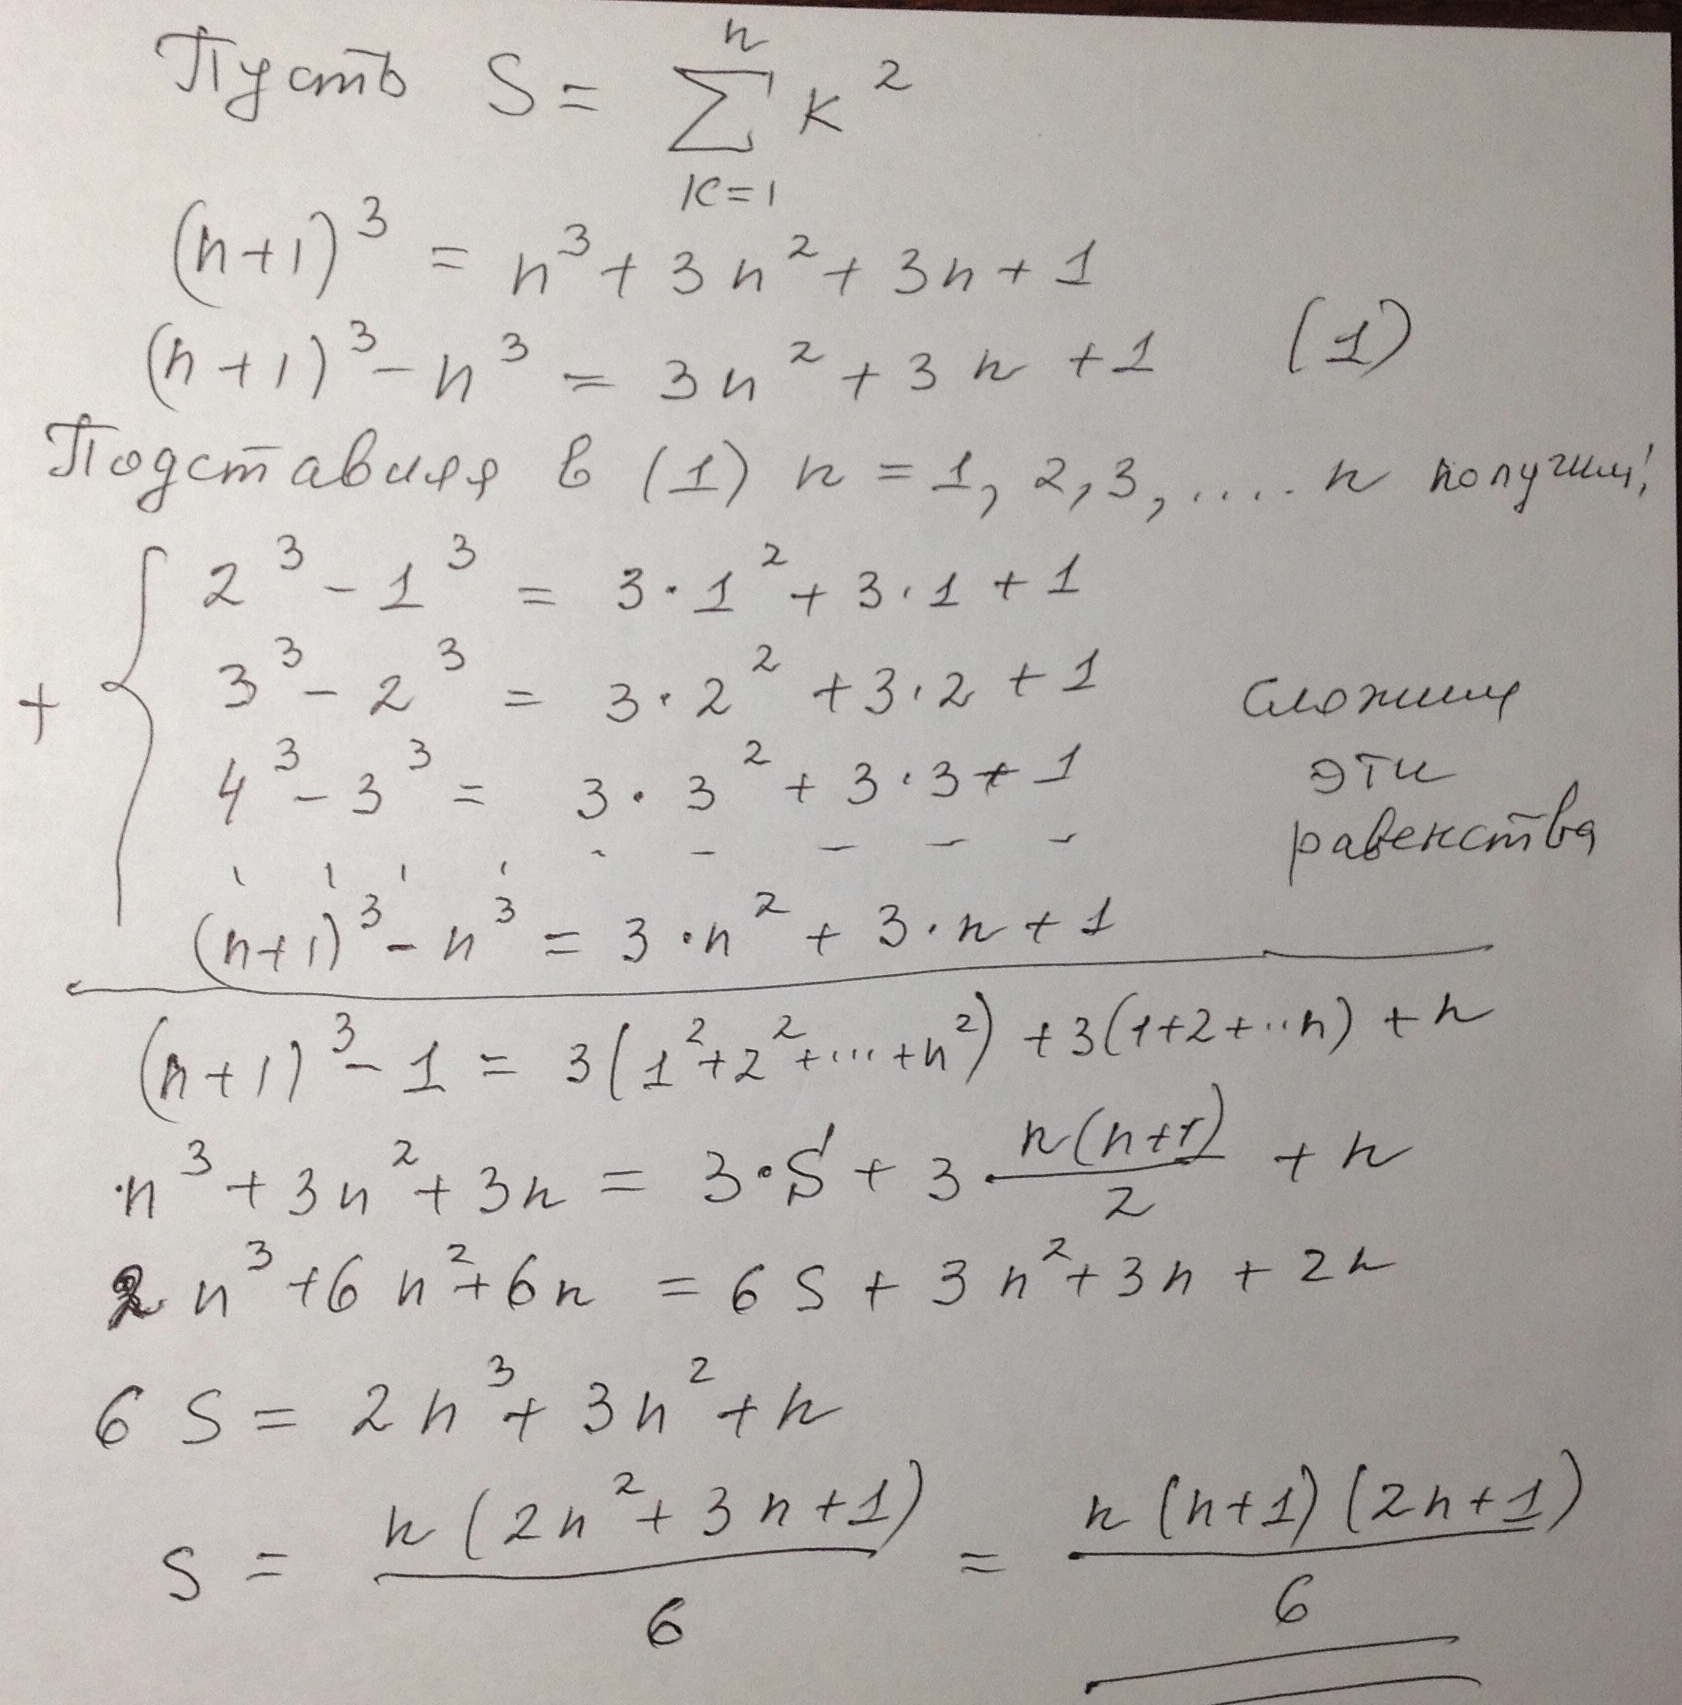 Пусть S = ∑ₖ₌₁ⁿ k²
(n+1)³ = n³ + 3n² + 3n + 1
(n+1)³ - n³ = 3n² + 3n + 1 (1)
Подставляя в (1) n = 1, 2, 3, .... n получим:
2³ - 1³ = 3·1² + 3·1 + 1
3³ - 2³ = 3·2² + 3·2 + 1
+ 4³ - 3³ = 3·3² + 3·3 + 1
Сложим
эти
равенства
(n+1)³ - n³ = 3·n² + 3·n + 1
(n+1)³ - 1 = 3(1² + 2² + ... + n²) + 3(1+2+...n) + n
n³ + 3n² + 3n = 3·S + 3·n(n+1)/2 + n
2n³ + 6n² + 6n = 6S + 3n² + 3n + 2n
6S = 2n³ + 3n² + n
S = n(2n² + 3n + 1)/6 = n(n+1)(2n+1)/6